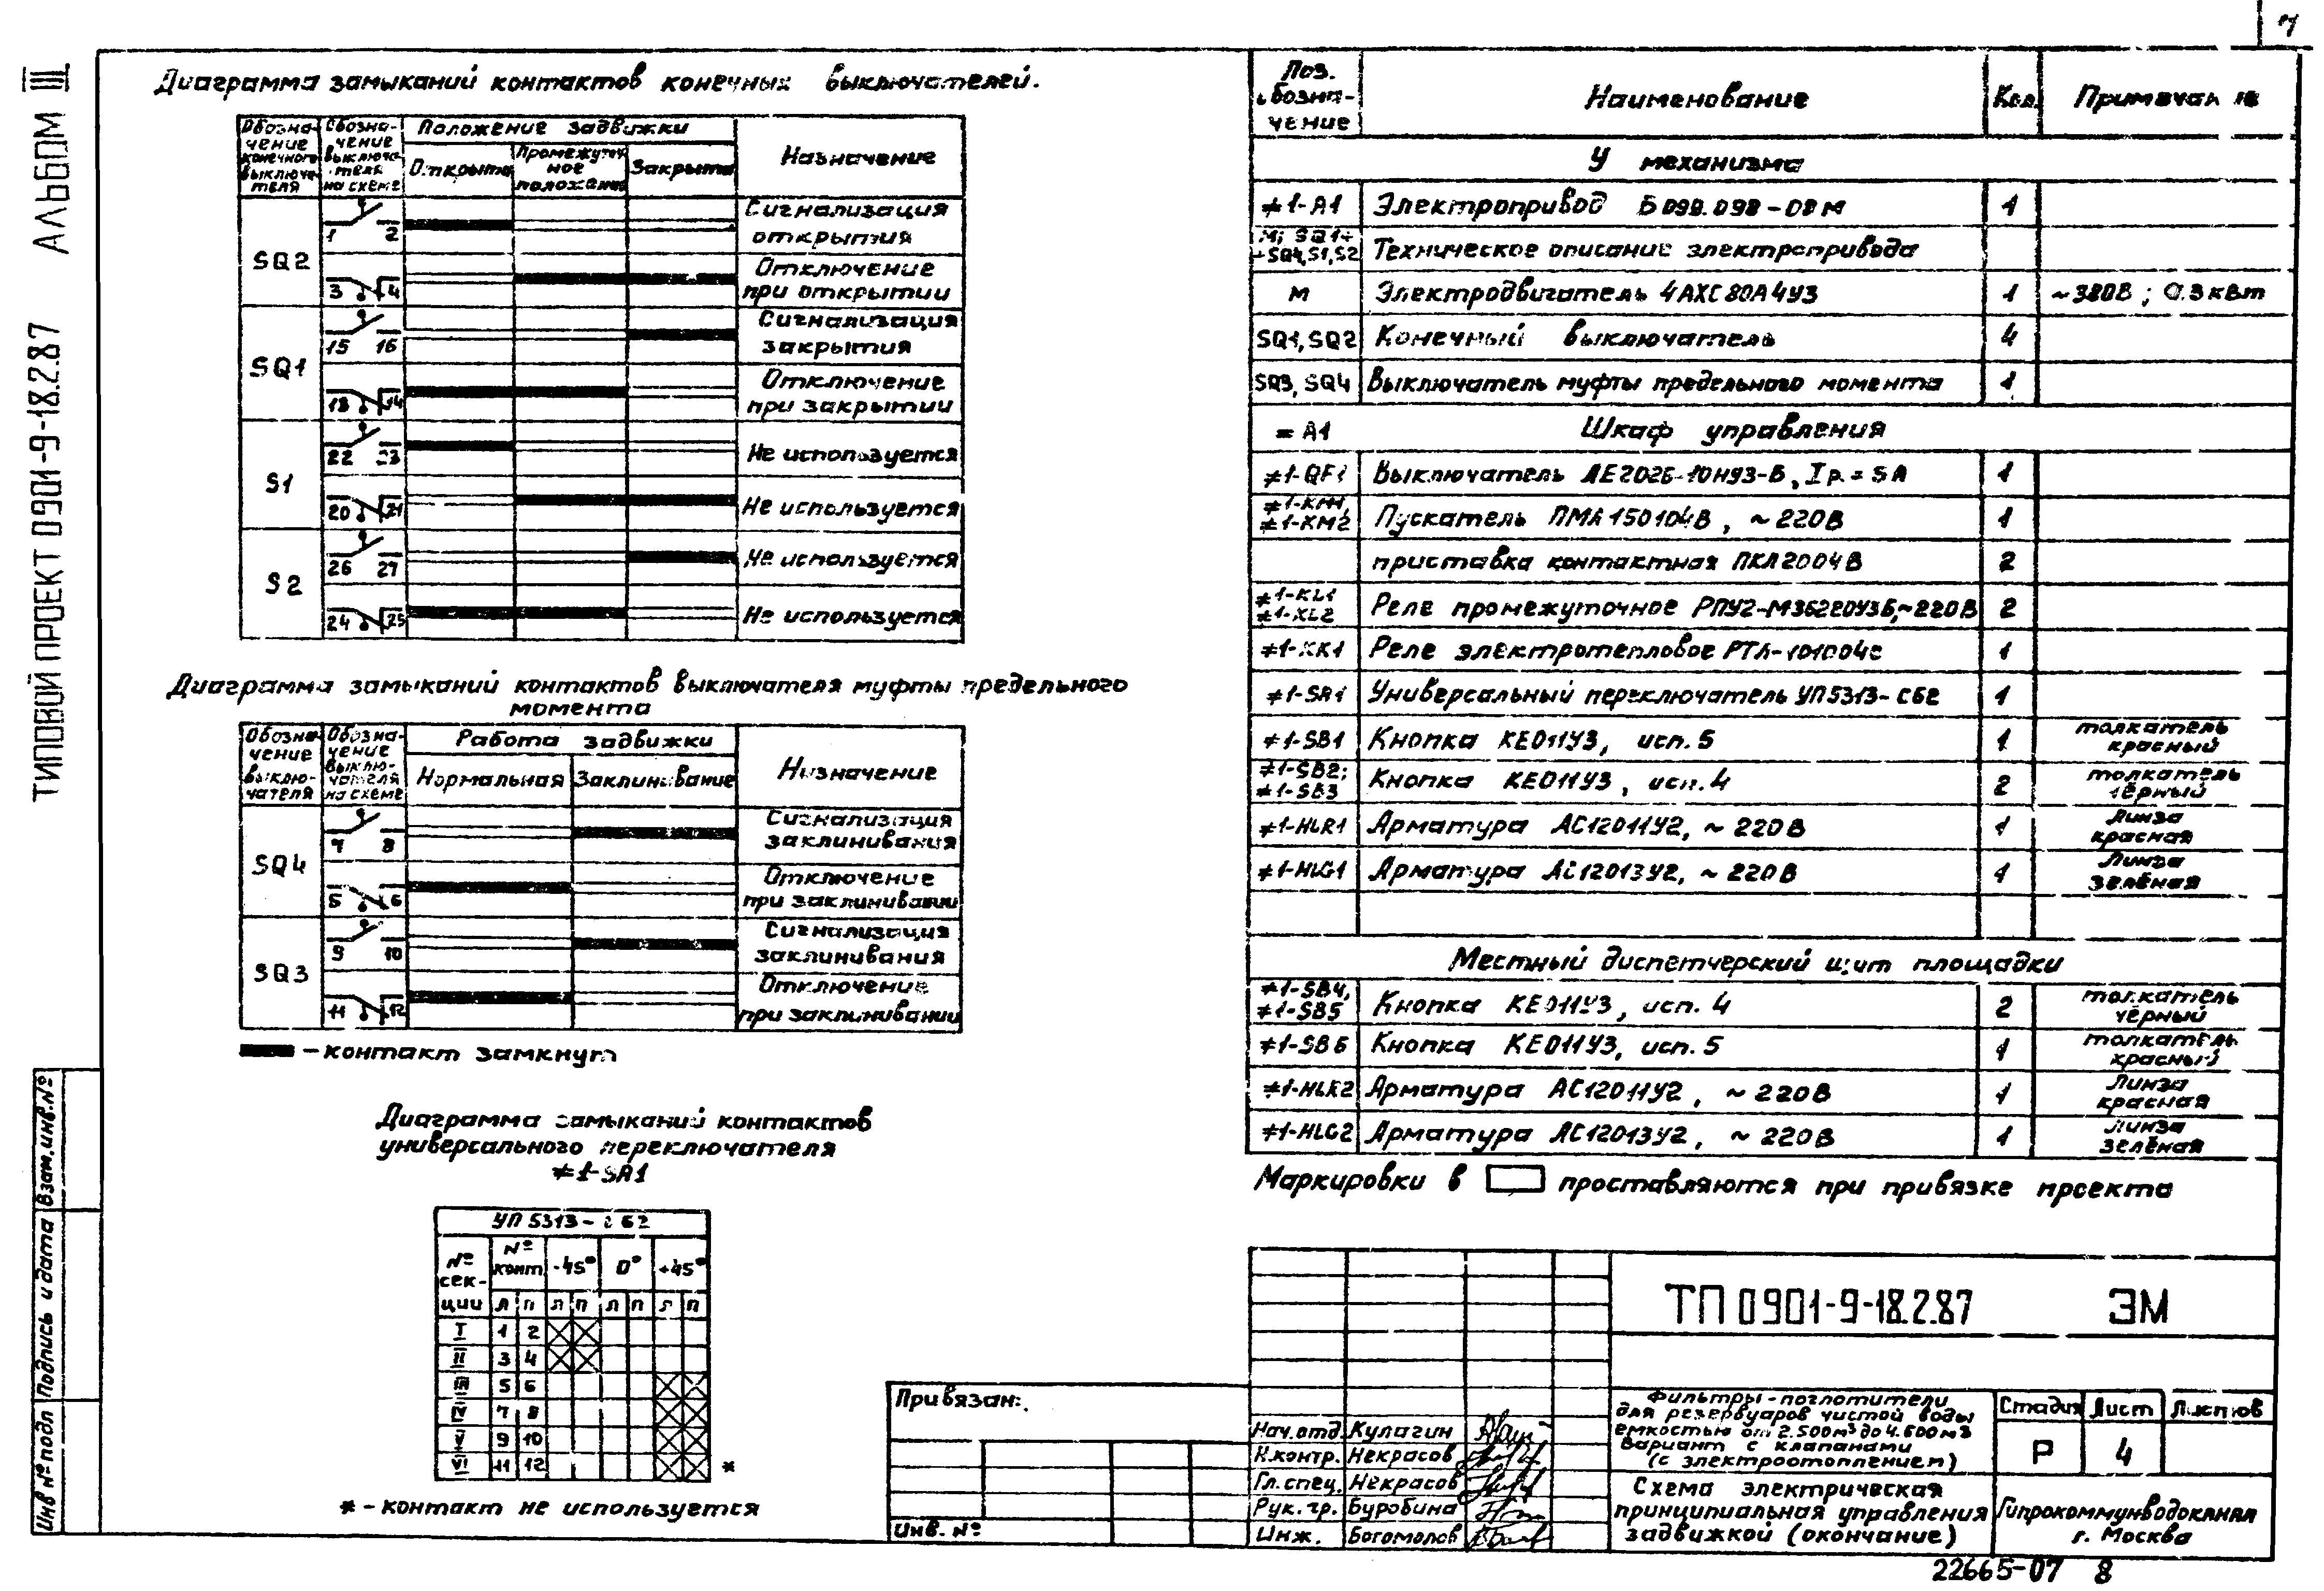 ТИПОВОЙ ПРОЕКТ 0901-9-18.2.87 АЛЬБОМ III
Диаграмма замыканий контактов конечных выключателей.
Обозначение конечного выключателя
Обозначение выключателя на схеме
Положение задвижки
Открыта
Промежуточное положение
Закрыта
Назначение
SQ2
1 2
Сигнализация
открытия
3 4
Отключение
при открытии
SQ1
15 16
Сигнализация
закрытия
13 14
Отключение
при закрытии
S1
22 23
Не используется
20 21
Не используется
S2
26 27
Не используется
24 25
Не используется
Диаграмма замыканий контактов выключателя муфты предельного
момента
Обозначение выключателя
Обозначение выключателя на схеме
Работа задвижки
Нормальная
Заклинивание
Назначение
SQ4
7 8
Сигнализация
заклинивания
5 6
Отключение
при заклинивании
SQ3
9 10
Сигнализация
заклинивания
11 12
Отключение
при заклинивании
– контакт замкнут
Диаграмма замыканий контактов
универсального переключателя
≠1-SA1
УП 5313 - С62
№ секции
№ конт.
-45° 0° +45°
Л П Л П Л П Л П
I 1 2
II 3 4
III 5 6
IV 7 8
V 9 10
VI 11 12 *
* - контакт не используется
Поз. обозначение
Наименование
Кол.
Примечание
У механизма
≠1-A1 Электропривод Б099.098-08М 1
М; SQ1÷
÷SQ4,S1,S2 Техническое описание электропривода
М Электродвигатель 4АХС80А4У3 1 ~380В; 0.3кВт
SQ1, SQ2 Конечный выключатель 4
SQ3, SQ4 Выключатель муфты предельного момента 1
= А1 Шкаф управления
≠1-QF1 Выключатель АЕ2026-10НУ3-Б, Iр.=5А 1
≠1-KM1,
≠1-KM2 Пускатель ПМЛ150104В, ~220В 1
приставка контактная ПКЛ2004В 2
≠1-KL1
≠1-KL2 Реле промежуточное РПУ2-М36220У3Б,~220В 2
≠1-KK1 Реле электротепловое РТЛ-101004С 1
≠1-SA1 Универсальный переключатель УП5313-С62 1
≠1-SB1 Кнопка КЕ011У3, исп.5 1 толкатель
красный
≠1-SB2;
≠1-SB3 Кнопка КЕ011У3, исп.4 2 толкатель
чёрный
≠1-HLR1 Арматура АС12011У2, ~220В 1 Линза
красная
≠1-HLG1 Арматура АС12013У2, ~220В 1 Линза
зелёная
Местный диспетчерский щит площадки
≠1-SB4,
≠1-SB5 Кнопка КЕ011У3, исп. 4 2 толкатель
чёрный
≠1-SB6 Кнопка КЕ011У3, исп. 5 1 толкатель
красный
≠1-HLR2 Арматура АС12011У2, ~220В 1 Линза
красная
≠1-HLG2 Арматура АС12013У2, ~220В 1 Линза
зелёная
Маркировки в проставляются при привязке проекта
ТП 0901-9-18.2.87 ЭМ
Фильтры-поглотители
для резервуаров чистой воды
емкостью от 2.500м³ до 4.600м³
Вариант с клапанами
(с электроотоплением)
Стадия Лист Листов
Р 4
Схема электрическая
принципиальная управления
задвижкой (окончание)
Гипрокоммунводоканал
г. Москва
Нач.отд. Кулагин
Н.контр. Некрасов
Гл.спец. Некрасов
Рук.гр. Буробина
Инж. Богомолов
Привязан:
Инв. №
Инв № подл Подпись и дата Взам.инв.№
22665-07 8